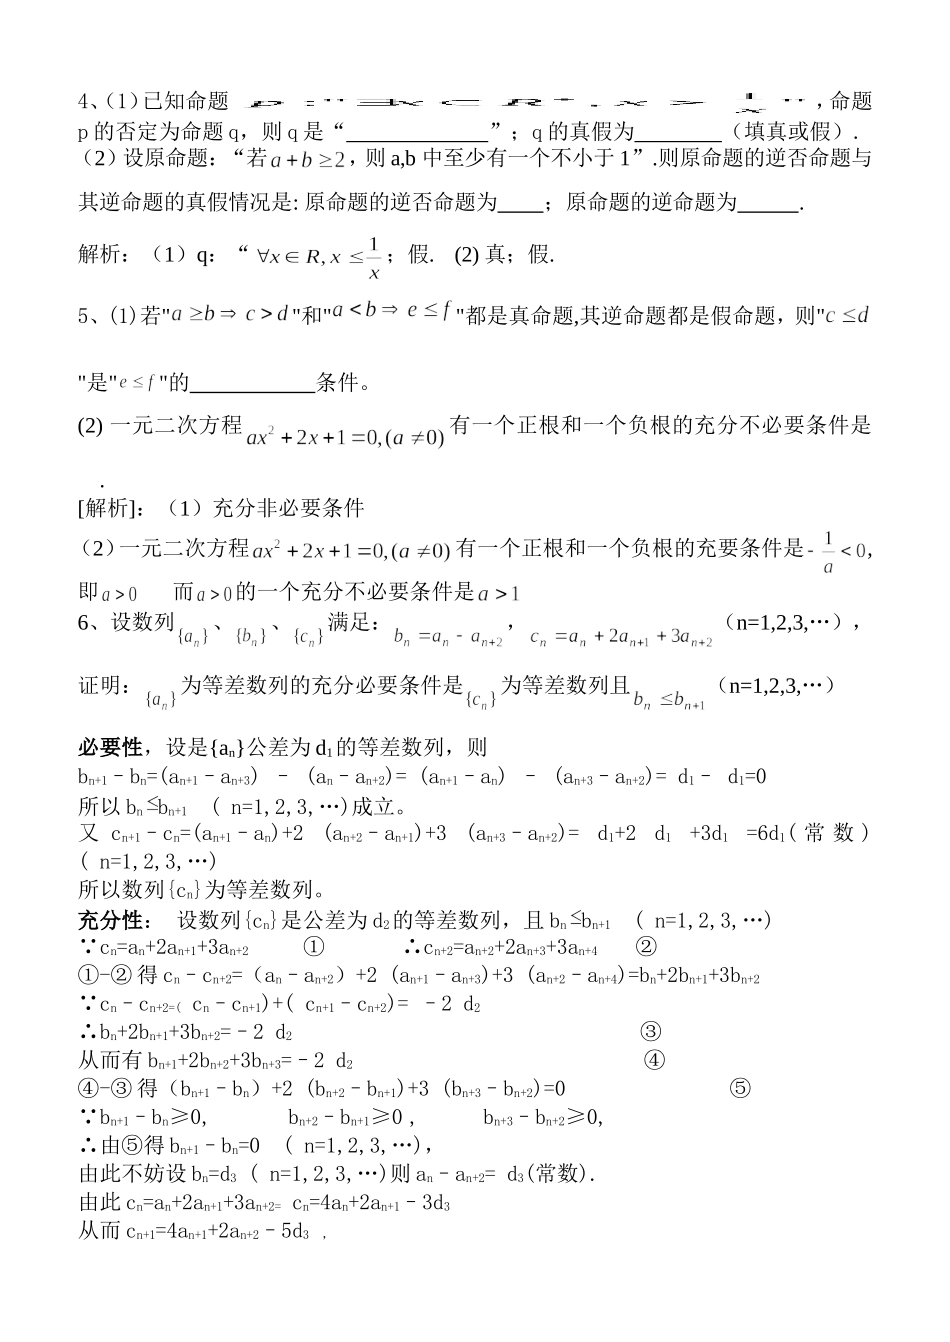 4、(1)已知命题 ，命题
p 的否定为命题 q，则 q 是“____________”；q 的真假为________（填真或假）.
（2）设原命题：“若 a+b≥2，则 a,b 中至少有一个不小于 1”.则原命题的逆否命题与
其逆命题的真假情况是: 原命题的逆否命题为____；原命题的逆命题为______.
解析：（1）q：“ ∀x∈R, x ≤ 1/x；假. (2) 真；假.
5、(1)若"a≥b⇒c>d"和"a<b⇒e≤f"都是真命题,其逆命题都是假命题，则"c≤d
"是"e≤f"的____________条件。
(2) 一元二次方程 ax²+2x+1=0,(a≠0) 有一个正根和一个负根的充分不必要条件是
.
[解析]：（1）充分非必要条件
（2）一元二次方程 ax²+2x+1=0,(a≠0) 有一个正根和一个负根的充要条件是 -1/a<0,
即 a>0 而 a>0 的一个充分不必要条件是 a>1
6、设数列{aₙ}、{bₙ}、{cₙ}满足：bₙ=aₙ-aₙ₊₂，cₙ=aₙ+2aₙ₊₁+3aₙ₊₂（n=1,2,3,…），
证明：{aₙ}为等差数列的充分必要条件是{cₙ}为等差数列且 bₙ≤bₙ₊₁（n=1,2,3,…）
必要性，设是{aₙ}公差为 d₁的等差数列，则
bₙ₊₁–bₙ=(aₙ₊₁–aₙ₊₃) – (aₙ–aₙ₊₂)= (aₙ₊₁–aₙ) – (aₙ₊₃–aₙ₊₂)= d₁– d₁=0
所以 bₙ≤bₙ₊₁ ( n=1,2,3,…)成立。
又 cₙ₊₁–cₙ=(aₙ₊₁–aₙ)+2 (aₙ₊₂–aₙ₊₁)+3 (aₙ₊₃–aₙ₊₂)= d₁+2 d₁ +3d₁ =6d₁(常数)
( n=1,2,3,…)
所以数列{cₙ}为等差数列。
充分性： 设数列{cₙ}是公差为 d₂的等差数列，且 bₙ≤bₙ₊₁ ( n=1,2,3,…)
∵cₙ=aₙ+2aₙ₊₁+3aₙ₊₂ ① ∴cₙ₊₂=aₙ₊₂+2aₙ₊₃+3aₙ₊₄ ②
①-②得 cₙ–cₙ₊₂=（aₙ–aₙ₊₂）+2 (aₙ₊₁–aₙ₊₃)+3 (aₙ₊₂–aₙ₊₄)=bₙ+2bₙ₊₁+3bₙ₊₂
∵cₙ–cₙ₊₂=( cₙ–cₙ₊₁)+( cₙ₊₁–cₙ₊₂)= –2 d₂
∴bₙ+2bₙ₊₁+3bₙ₊₂=–2 d₂ ③
从而有 bₙ₊₁+2bₙ₊₂+3bₙ₊₃=–2 d₂ ④
④-③得（bₙ₊₁–bₙ）+2 (bₙ₊₂–bₙ₊₁)+3 (bₙ₊₃–bₙ₊₂)=0 ⑤
∵bₙ₊₁–bₙ≥0, bₙ₊₂–bₙ₊₁≥0 , bₙ₊₃–bₙ₊₂≥0,
∴由⑤得 bₙ₊₁–bₙ=0 ( n=1,2,3,…)，
由此不妨设 bₙ=d₃ ( n=1,2,3,…)则 aₙ–aₙ₊₂= d₃(常数).
由此 cₙ=aₙ+2aₙ₊₁+3aₙ₊₂= cₙ=4aₙ+2aₙ₊₁–3d₃
从而 cₙ₊₁=4aₙ₊₁+2aₙ₊₂–5d₃ ,